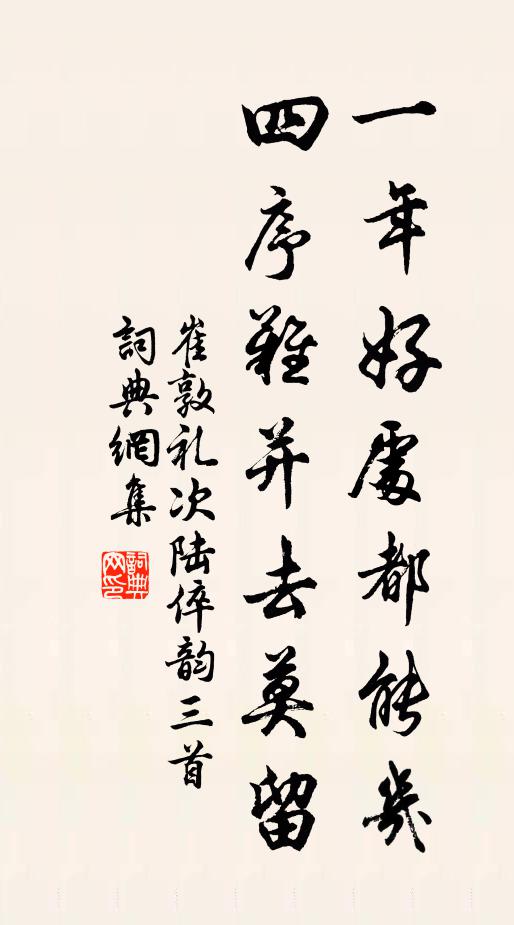 一年好處都能幾
四序難并去莫留
崔敦礼次陆倅韵三首
詞典網集
詞典
网印